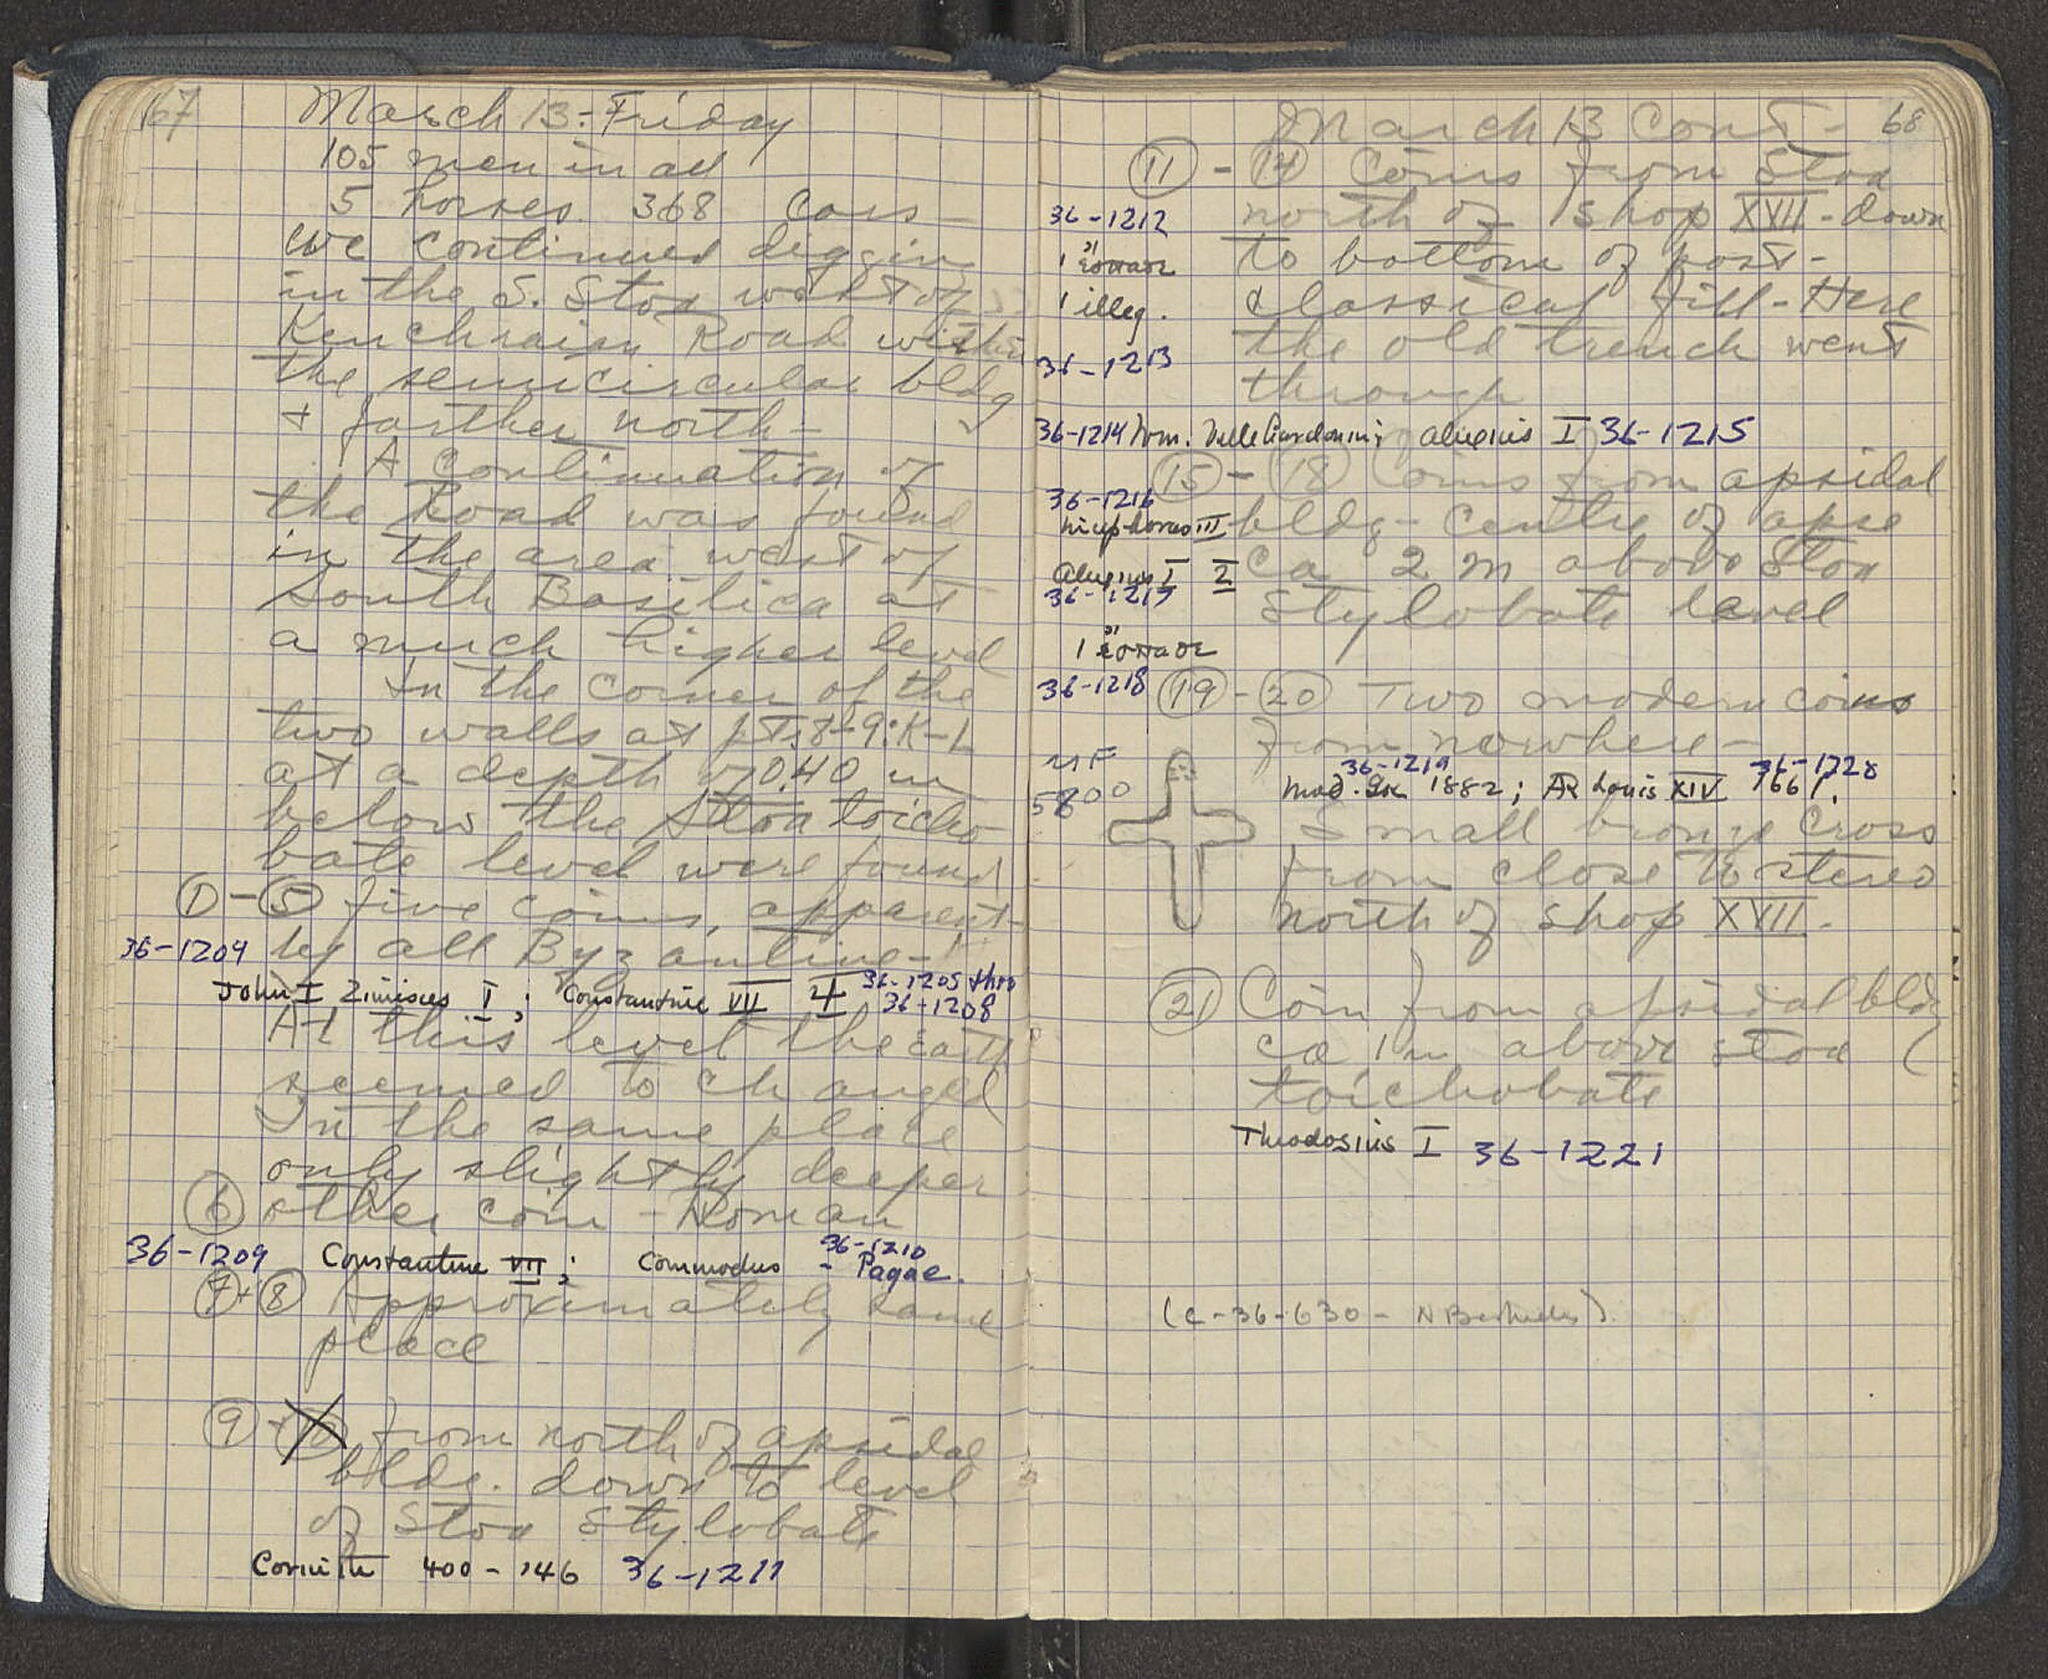 67
March 13 - Friday
105 men in all
5 horses 368 cars -
we continued digging
in the S. Stoa west of
Kenchraian Road within
the semicircular bldg
+ farther north -
A continuation of
the Road was found
in the area west of
South Basilica at
a much higher level
In the corner of the
two walls at pt. 8-9:K-L
at a depth of 0.40 m
below the Stoa toicho
bate level were found
① - ⑤ five coins, apparent-
36-1204 ly all Byzantine -
John I Zimisces I; Constantine VII 4 36-1205 thro 36-1208
At this level the earth
seemed to changed
In the same place
only slightly deeper
⑥ other coin - Roman
36-1209 Constantine VII; Commodus - Pagae. 36-1210
⑦ + ⑧ Approximately same
place
⑨ + ⑩ from north of apsidal
bldg. down to level
of Stoa Stylobate
Corinth 400-146 36-1211
March 13 Cont - 68
⑪ - ⑭ Coins from Stoa
36-1212 north of shop XVII - down
1 to bottom of post-
1 illeg. classical fill - Here
36-1213 the old trench went
through
36-1214 Wm. Villehardouin; Alexius I 36-1215
⑮ - ⑱ Coins from apsidal
36-1216
Nicephorus III bldg - centre of apse
Alexius I 2 ca 2 m above Stoa
36-1217
stylobate level
1
36-1218 ⑲ - ⑳ Two modern coins
from nowhere -
36-1219 36-1220
Mod. Gk 1882; AR Louis XIV 1661.
MF
5800
Small bronze cross
from close to stereo
north of shop XVII.
㉑ Coin from apsidal bldg
ca 1 m above stoa
toichobate
Theodosius I 36-1221
(C-36-630 - N Bertudes)